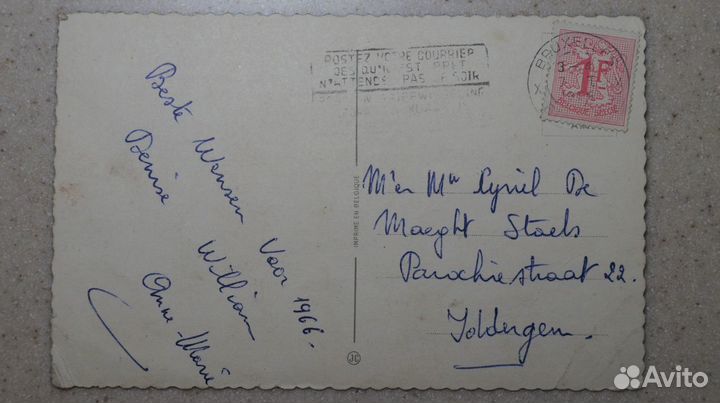 POSTEZ VOTRE COURRIER
DES QU'IL EST PRET
N'ATTENDEZ PAS LE SOIR
BRUXELLES
1F
BELGIQUE-BELGIE
Beste Wensen Voor 1966.
Denise William
Anne-Marie
IMPRIME EN BELGIQUE
JC
M'en Mw Cyriel De
Maeght Staels
Parochiestraat 22.
Ioldergem.
Avito